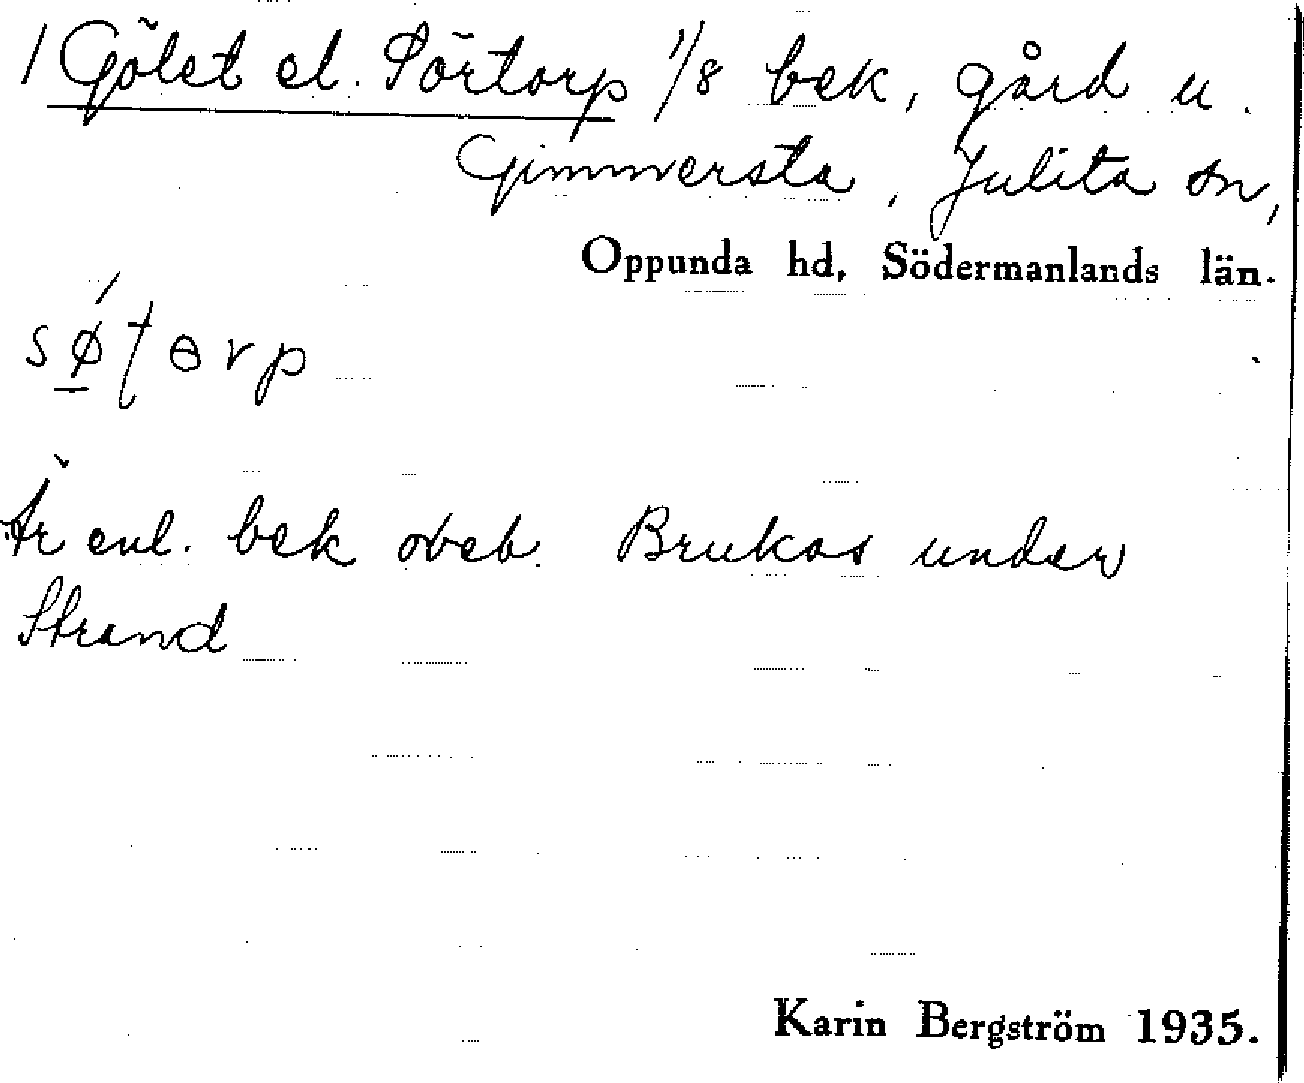 1 Gölet el. Sörtorp 1/8 bek, gård u.
Gimmersta, Julita sn,
Oppunda hd, Södermanlands län.
Är enl. bek obeb. Brukas under
Strand
Karin Bergström 1935.